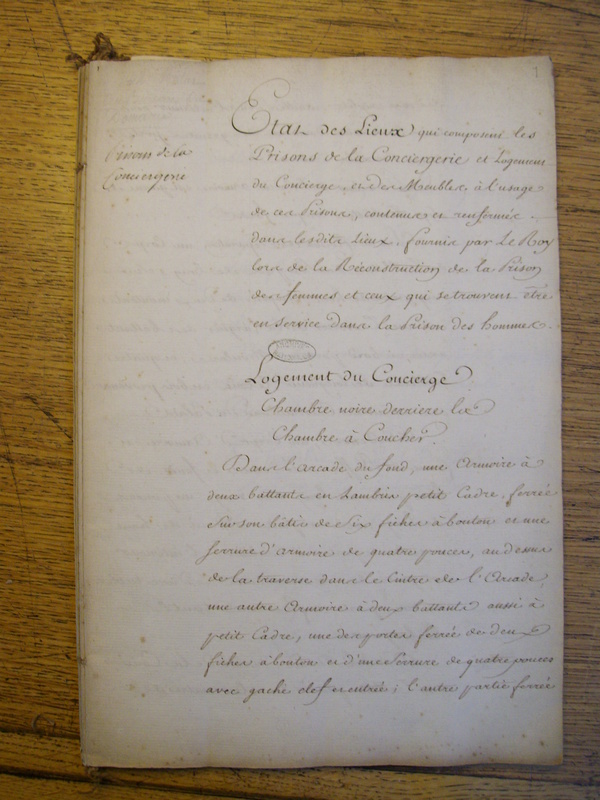 1
Prisons de la
Conciergerie
Etat des Lieux qui composent les
Prisons de la Conciergerie et Logement
du Concierge, et des Meubles à l'usage
de ces Prisons, contenus et renfermés
dans lesdits Lieux, fournis par Le Roy
lors de la Réconstruction de la Prison
des femmes et ceux qui se trouvent être
en service dans la Prison des hommes
Logement du Concierge
Chambre noire derriere la
Chambre à Coucher.
Dans l'arcade du fond, une Armoire à
deux battants en Lambris petit Cadre, ferrée
sur son bâti de Six fiches à bouton et une
serrure d'armoire de quatre pouces, au dessus
de la traverse dans le Cintre de l'Arcade,
une autre Armoire à deux battants aussi à
petit Cadre, une des portes ferrée de deux
fiches à bouton et d'une Serrure de quatre pouces
avec gache clef et entrée; l'autre partie ferrée